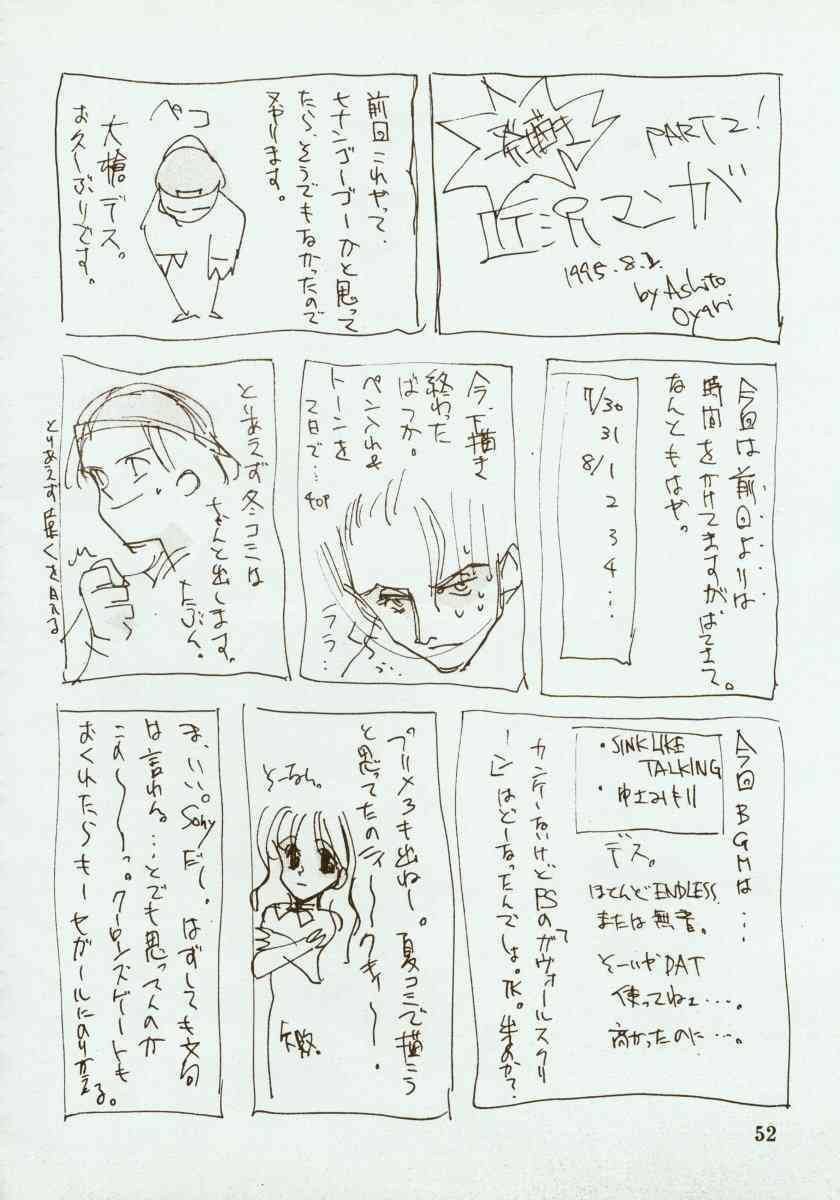 PART2!
マンガ
1995.8.2.
by Ashito
Oyari
前回これやって、
ヒナンゴーゴーかと思って
たら、そうでもなかったので
又やります。
ペコ
大槍デス。
お久しぶりです。
今回は前回よりは
時間をかけてますが
なんともはや。
7/30
31
8/1
2
3
4…
今、下描き
終わった
ばっか。
ペン入れ&
トーンを
2日で…
40P
ララ…
とりあえず冬コミは
ちゃんと出します。
たぶん。
とりあえず
今回BGMは…
・SINK LIKE
TALKING
デス。
ほとんどENDLESS
または無音。
そーいやDAT
使ってねェ…。
高かったのに…。
カンケーないけどPSの「ヴォールスクリ
ーン」はどーなったんでしょ。TK。
プリメ3も出ねー。夏コミで描こう
と思ってたのニィ〜〜クキィ〜〜。
そーなん。
ま、いい。Sonyだし。はずしても文句
は言わん。…とでも思ってんのか
この〜〜〜っ。クーロンズゲートも
おくれたらもーセガールにのりかえる。
52